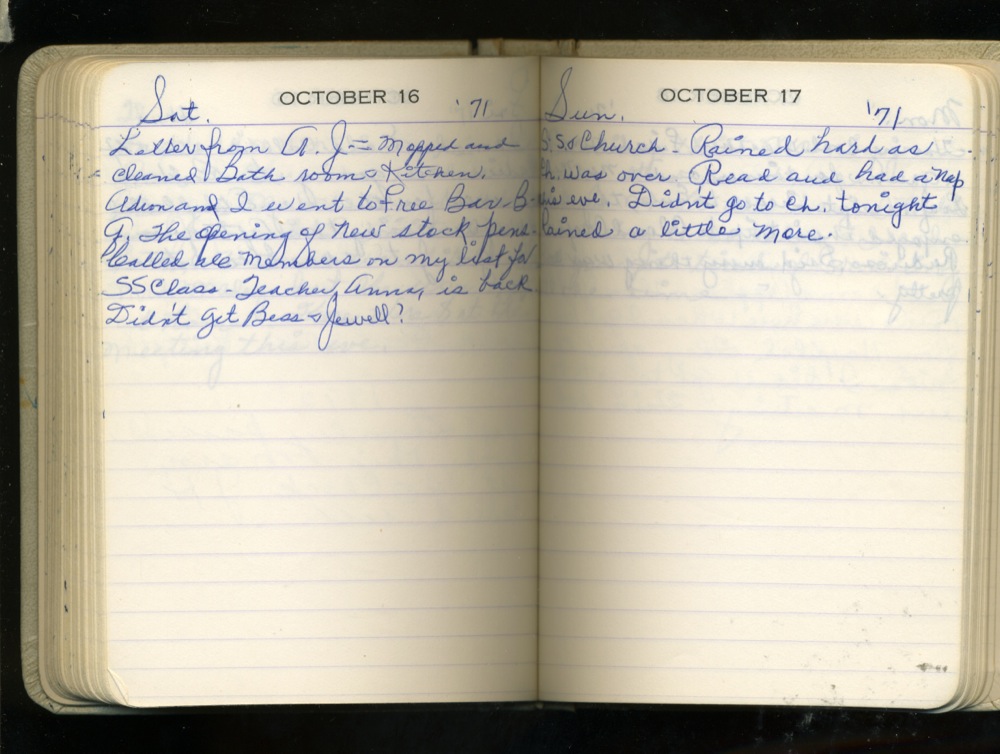 Sat. OCTOBER 16 '71
Letter from A. J - Mopped and
cleaned Bath room & Kitchen.
and I went to free Bar B-
Q. The opening of New stock pens.
Called all members on my list for
SS Class - Teacher, Anna, is back
Didn't get Bess & Jewell?
Sun. OCTOBER 17 '71
S.S. & Church - Rained hard as
Ch. was over. Read and had a nap
this eve. Didn't go to Ch. tonight
Rained a little more.